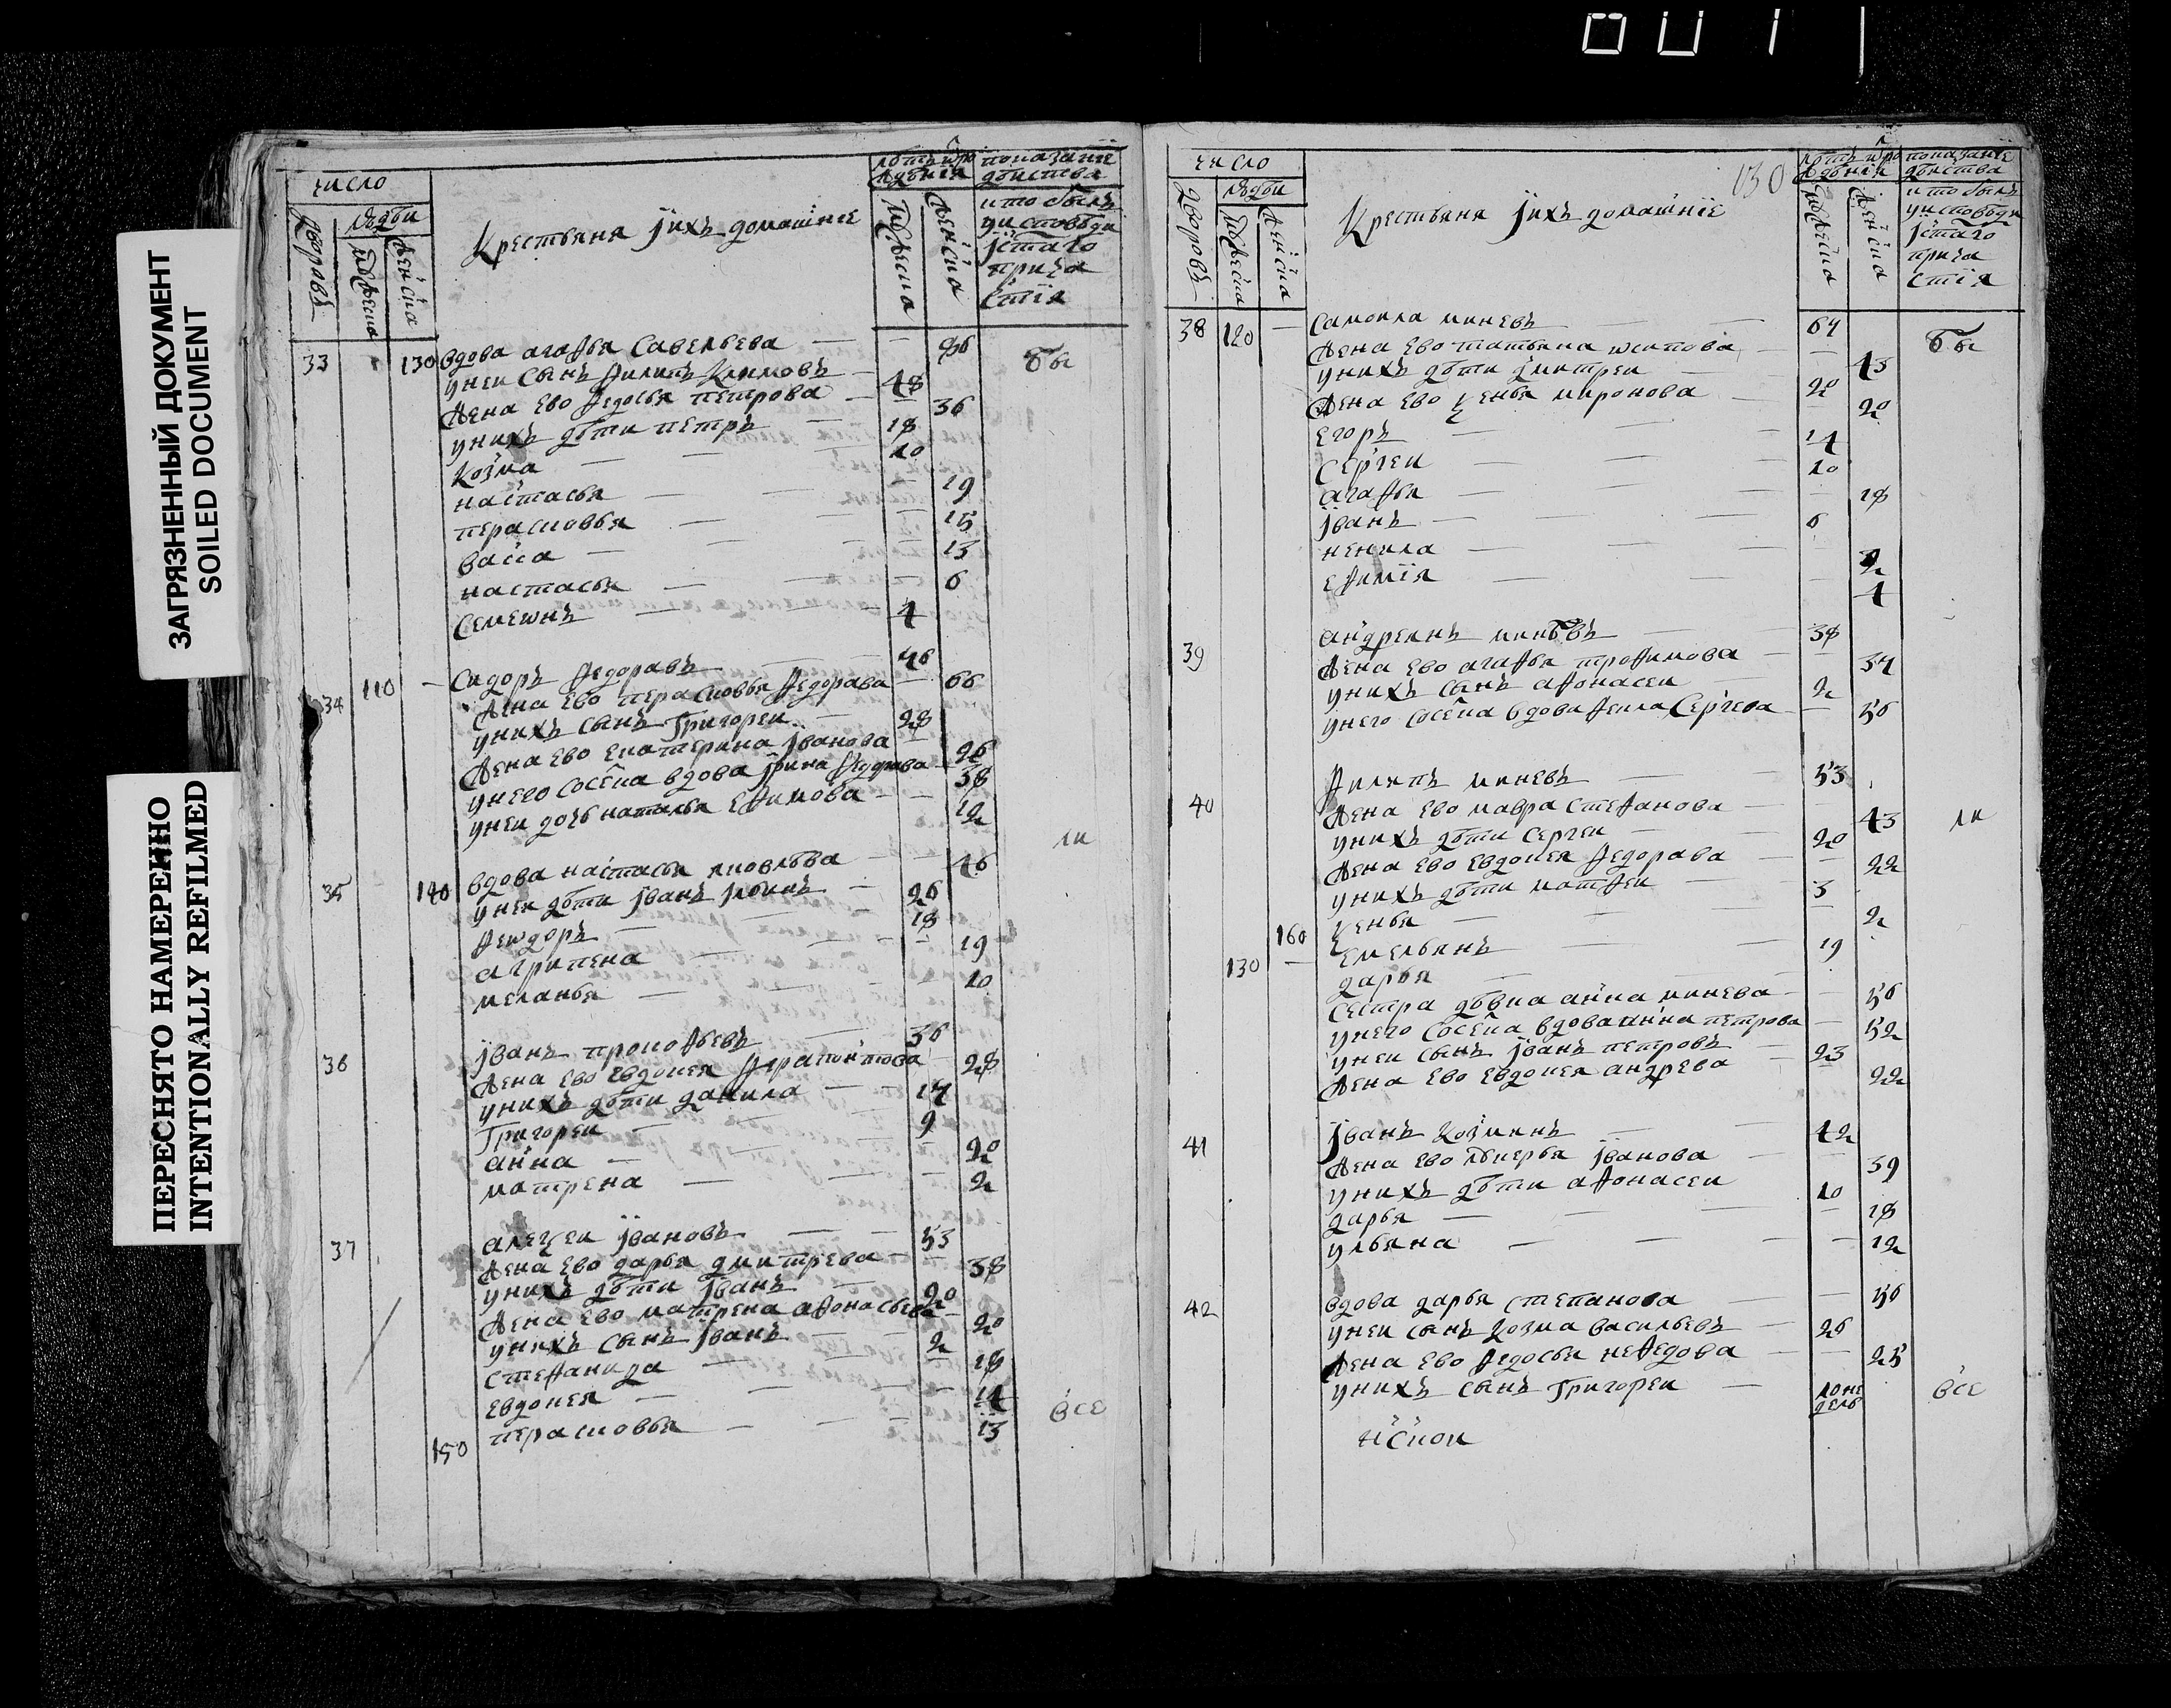 ЗАГРЯЗНЕННЫЙ ДОКУМЕНТ
SOILED DOCUMENT
ПЕРЕСНЯТО НАМЕРЕННО
INTENTIONALLY REFILMED
число
дворовъ
людеи
мужеска
женска
Крестьяня їихъ домашние
лѣтъ
мужеска
женска
показание
дѣиства
кто былъ
уисповѣди
їстаго
прича
стїя
33 130 вдова агафья Савельева — — 86 бы
унеи сынъ филипъ Климовъ — 48
жена ево федосья петрова — 36
унихъ дѣти петръ — 18
Козма — 10
настасья — 19
перасковья — 15
васса — 13
настасья — 6
Семеѡнъ — 4
34 110 — Сидоръ федоравъ — 46
жена ево перасковья федорава — 66
унихъ сынъ Григореи — 28
жена ево екатерина їванова — 26
унего соседка вдова їрина федорава — 38
унеи дочь наталья ефимова — 12
ли
35 140 вдова настасья яковлѣва — 46
унея дѣти їванъ — 26
феѡдоръ — 18
агрипена — 19
меланья — 10
36 їванъ прокофьевъ — 36
жена ево евдокея ферапонтова — 28
унихъ дѣти данила — 14
Григореи — 9
анна — 20
матрена — 2
37 алеѯеи ївановъ — 53
жена ево дарья дмитрева — 38
унихъ дѣти їванъ — 20
жена ево матрена афонасьева — 20
унихъ сынъ їванъ — 2
стефанида — 18
евдокея — 14 все
150 перасковья — 13
130
число
дворовъ
людеи
мужеска
женска
Крестьяня їихъ домашнїе
лѣтъ
мужеска
женска
показанїе
дѣиства
кто былъ
уисповѣди
їстаго
прича
стїя
38 120 — Самоила миневъ — 64 бы
жена ево татьяна ѡсипова — 43
унихъ дѣти дмитреи — 20
жена ево ѯенья миронова — 20
егоръ — 14
Сергеи — 10
агафья — 18
їванъ — 6
ненила — 2
ефимїя — 4
39 андреянъ минѣвъ — 38
жена ево агафья трофимова — 34
унихъ сынъ афонасеи — 2
унего соседка вдова фекла Сергева — 56
40 филипъ миневъ — 53
жена ево мавра стефанова — 43 ли
унихъ дѣти сергеи — 20
жена ево евдокея федорава — 22
унихъ дѣти матфеи — 3
160 ѯенья — 2
130 — емельянъ — 19
дарья
сестра дѣвка анна минева — 56
унего соседка вдова анна петрова — 52
унеи сынъ їванъ петровъ — 23
жена ево евдокея андрева — 22
41 їванъ козминъ — 42
жена ево лукерья їванова — 39
унихъ дѣти афонасеи — 10
дарья — 18
ульяна — 12
42 вдова дарья степанова — 56
унеи сынъ козма васильевъ — 26
жена ево федосья нефедова — 25
унихъ сынъ Григореи — все